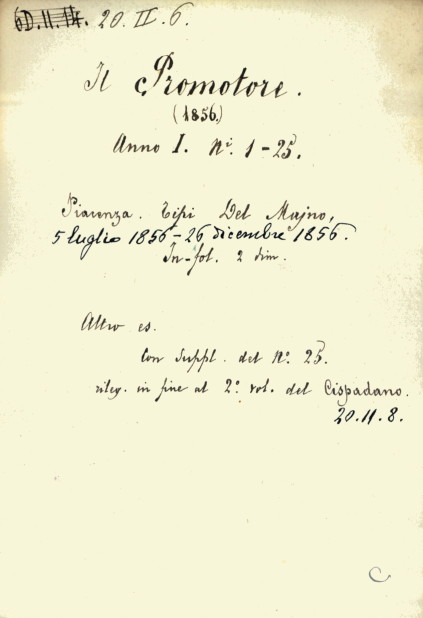 6D.II.14. 20.II.6.
Il Promotore.
(1856.)
Anno I. Ni. 1-25.
Piacenza. Tipi Del Majno,
5 luglio 1856-26 dicembre 1856.
In-fol. 2 dim.
Altro es.
Con suppl. del No. 25.
rileg. in fine al 2o. vol. del Cispadano.
20.II.8.
C